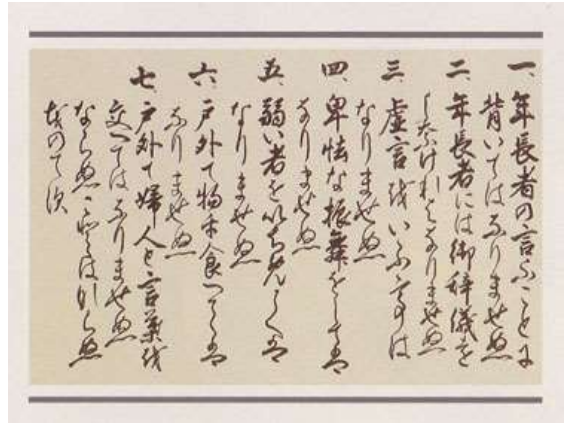 一、年長者の言ふことに
背いてはなりませぬ
二、年長者には御辞儀を
しなければなりませぬ
三、虚言をいふ事は
なりませぬ
四、卑怯な振舞をしては
なりませぬ
五、弱い者をいちめては
なりませぬ
六、戸外て物を食へては
なりませぬ
七、戸外て婦人と言葉を
交へてはなりませぬ
ならぬことはならぬ
ものてす